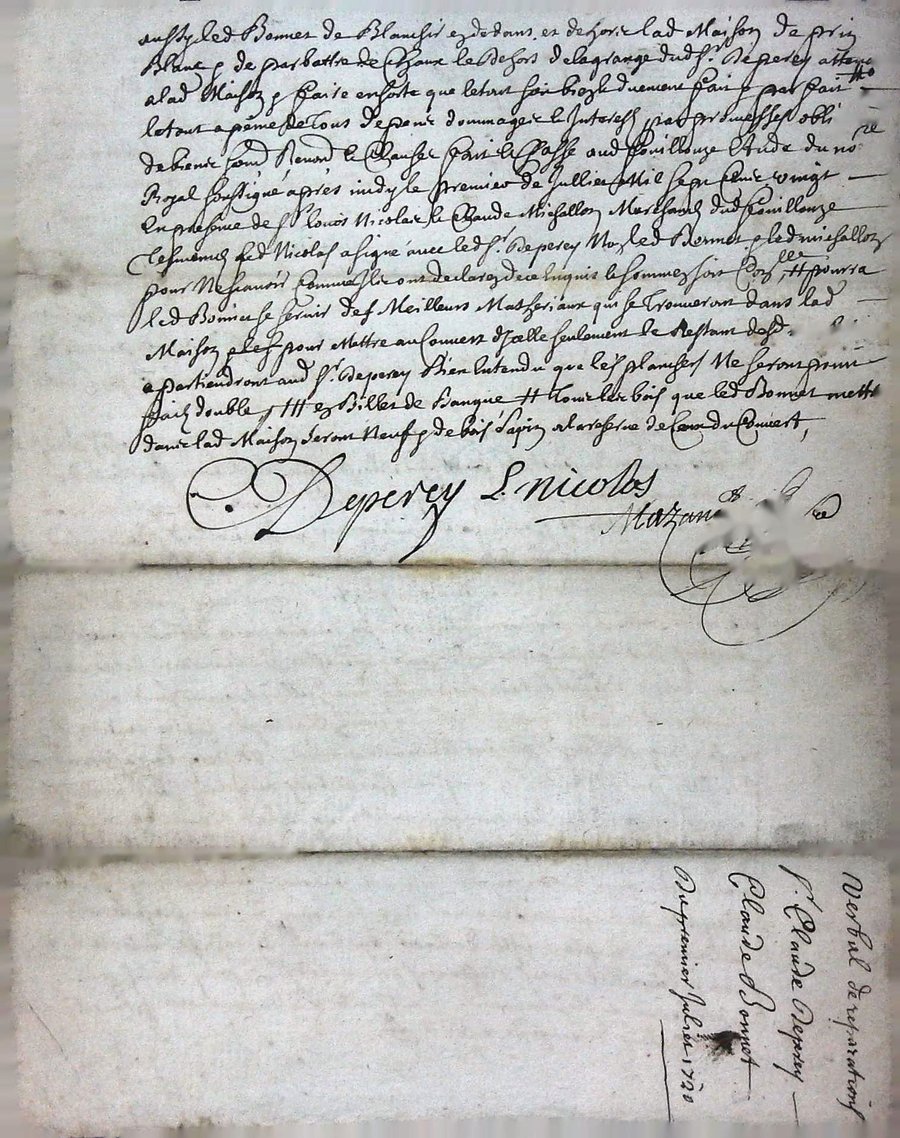 aussy led Bonnet de Blanchir ez dedans et dehors lad Maison de gris
Blanc & de parbattre de Chaux le dehors de la grange dud Sr. Deperey attena
a lad Maison & faire ensorte que le tout soit bien & duement fait & parfait
le tout a peine de tous depens dommages & Interests, par promesses obli
de biens soud Renon & Clauses fait & Passé aud Couillouze Etude du no re
Royal soussigné après midy le premier de Juillet Mil sept Cent vingt
En presence de Sr. Louis Nicolas & Claude Michallon Marchands dud Couillouze
tesmoins led Nicolas a signé avec led Sr. Deperey Non led Bonnet & led michallon
pour Ne scavoir comme ils ont declarez de ce Enquis & sommez soit Con lle # pourra
led Bonnet se servir des Meilleurs Matheriaux qui se trouveront dans lad
Maison pour Mettre au Couvert d'Icelle seulement le Restant desd.
apartiendront aud Sr. Deperey Bien Entendu que les planchers Ne seront point
faits double, ez Billet de Banque # Tous les bois que led Bonnet mettr
dans lad Maison seront Neufs & de bois sapin a la reserve de Ceux du Couvert,
Deperey L. nicolas
Mazan
Verbal de reparations
Sr. Claude Deperey
Claude Bonnet
Du premier Julliet 1720